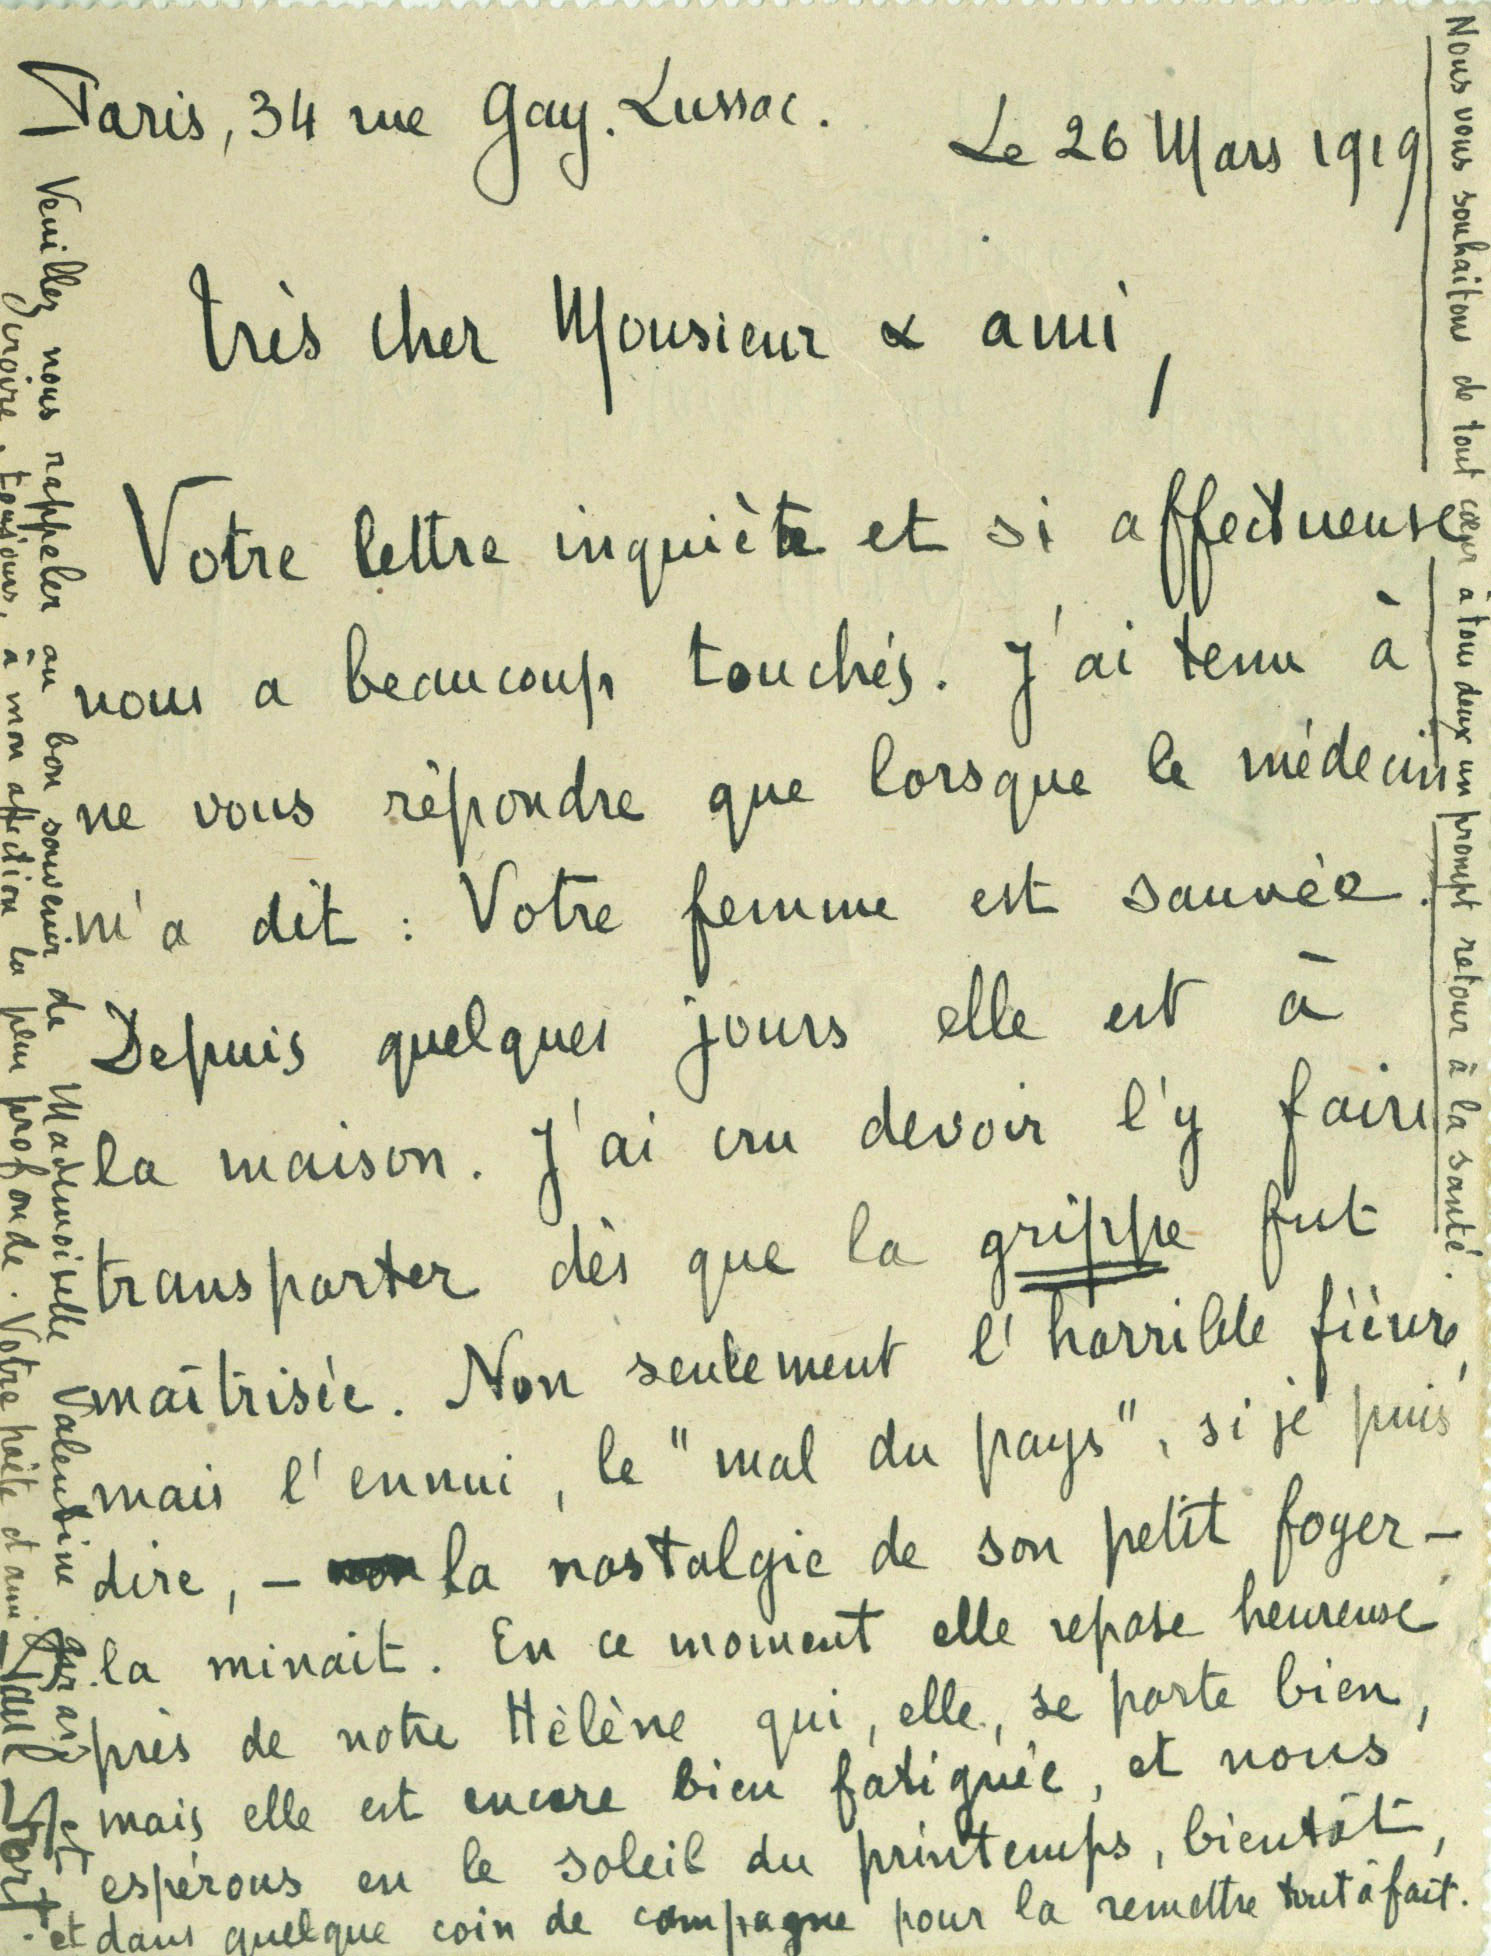 Paris, 34 rue Gay-Lussac.
Le 26 Mars 1919
Très cher Monsieur & ami,
Votre lettre inquiète et si affectueuse
nous a beaucoup touchés. J'ai tenu à
ne vous répondre que lorsque le médecin
m'a dit : Votre femme est sauvée.
Depuis quelques jours elle est à
la maison. J'ai cru devoir l'y faire
transporter dès que la grippe fut
maîtrisée. Non seulement l'horrible fièvre,
mais l'ennui, le "mal du pays", si je puis
dire, – la nostalgie de son petit foyer –
la minait. En ce moment elle repose heureuse
près de notre Hélène qui, elle, se porte bien,
mais elle est encore bien fatiguée, et nous
espérons en le soleil du printemps, bientôt,
et dans quelque coin de campagne pour la remettre tout à fait.
Nous vous souhaitons de tout cœur à tous deux un prompt retour à la santé.
Veuillez nous rappeler au bon souvenir de Mademoiselle Valentine Gras, et
croire, toujours, à mon affection la plus profonde. Votre poète et ami
Paul Fort.